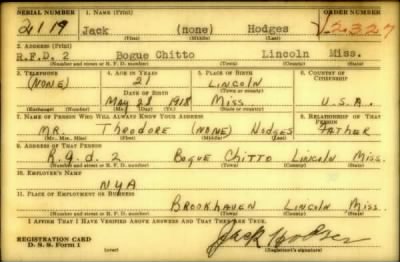 SERIAL NUMBER 1. NAME (Print) ORDER NUMBER
2119 Jack (none) Hodges V-2327
(First) (Middle) (Last)
2. ADDRESS (Print)
R.F.D. 2 Bogue Chitto Lincoln Miss.
(Number and street or R. F. D. number) (Town) (County) (State)
3. TELEPHONE 4. AGE IN YEARS 5. PLACE OF BIRTH 6. COUNTRY OF CITIZENSHIP
(NONE) 21 LINCOLN
DATE OF BIRTH (Town or county)
May 28 1918 Miss. U.S.A.
(Exchange) (Number) (Mo.) (Day) (Yr.) (State or country)
7. NAME OF PERSON WHO WILL ALWAYS KNOW YOUR ADDRESS 8. RELATIONSHIP OF THAT PERSON
MR. Theodore (NONE) Hodges FATHER
(Mr., Mrs., Miss) (First) (Middle) (Last)
9. ADDRESS OF THAT PERSON
R.f.d. 2 BOGUE CHITTO LINCOLN MISS.
(Number and street or R. F. D. number) (Town) (County) (State)
10. EMPLOYER'S NAME
NYA
11. PLACE OF EMPLOYMENT OR BUSINESS
BROOKHAVEN LINCOLN MISS.
(Number and street or R. F. D. number) (Town) (County) (State)
I AFFIRM THAT I HAVE VERIFIED ABOVE ANSWERS AND THAT THEY ARE TRUE.
REGISTRATION CARD
D. S. S. Form 1 (over) Jack Hodges
(Registrant's signature)